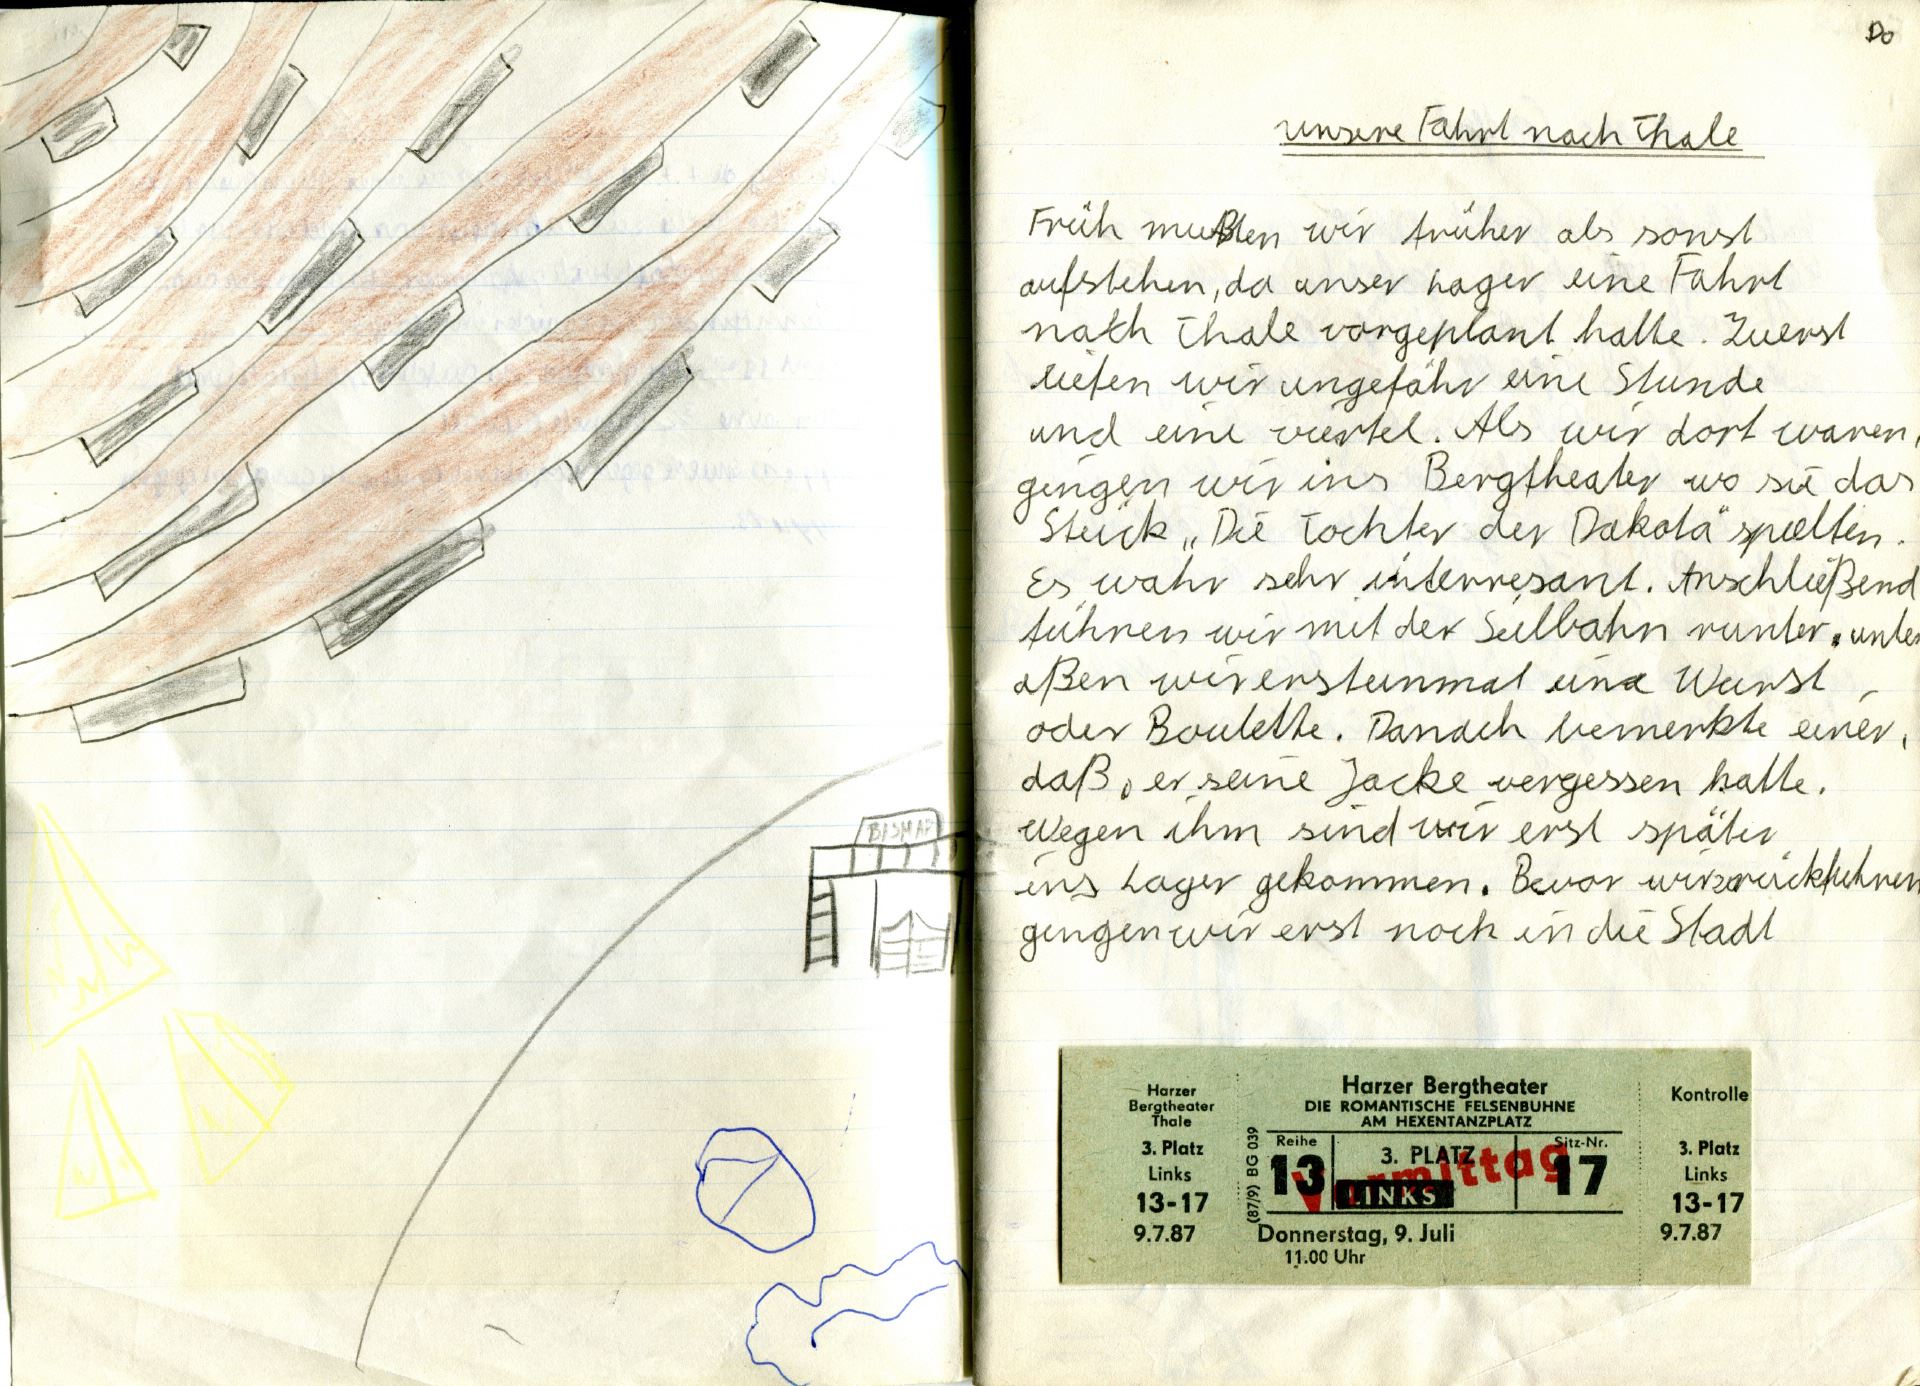 BISMAR
Do
unsere Fahrt nach Thale
Früh mußten wir früher als sonst
aufstehen, da unser Lager eine Fahrt
nach Thale vorgeplant hatte. Zuerst
liefen wir ungefähr eine Stunde
und eine viertel. Als wir dort waren,
gingen wir ins Bergtheater wo sie das
Stück „Die Tochter der Dakota" spielten.
Es wahr sehr interresant. Anschließend
führen wir mit der Seilbahn runter. unten
aßen wir ersteinmal eine Wurst
oder Boulette. Danach bemerkte einer,
daß, er seine Jacke vergessen hatte.
Wegen ihm sind wir erst später
ins Lager gekommen. Bevor wir zurückfuhren
gingen wir erst noch in die Stadt
Harzer
Bergtheater
Thale
3. Platz
Links
13-17
9.7.87
(87/9) BG 039
Harzer Bergtheater
DIE ROMANTISCHE FELSENBÜHNE
AM HEXENTANZPLATZ
Reihe
13
3. PLATZ
LINKS
Vormittag
Sitz-Nr.
17
Donnerstag, 9. Juli
11.00 Uhr
Kontrolle
3. Platz
Links
13-17
9.7.87